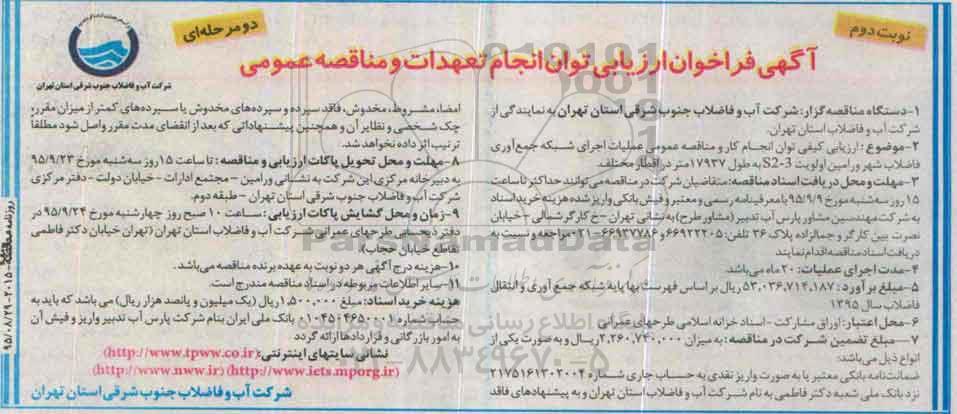 نوبت دوم
دو مرحله‌ای
شرکت آب و فاضلاب جنوب شرقی استان تهران
آگهی فراخوان ارزیابی توان انجام تعهدات و مناقصه عمومی
۱-دستگاه مناقصه گزار: شرکت آب و فاضلاب جنوب شرقی استان تهران به نمایندگی از
شرکت آب و فاضلاب استان تهران.
۲-موضوع: ارزیابی کیفی توان انجام کار و مناقصه عمومی عملیات اجرای شبکه جمع‌آوری
فاضلاب شهر ورامین اولویت S2-3 به طول ۱۷۹۳۷متر در اقطار مختلف.
۳-مهلت و محل دریافت اسناد مناقصه: متقاضیان شرکت در مناقصه می‌توانند حداکثر تا ساعت
۱۵ روز سه‌شنبه مورخ ۹۵/۹/۹ با معرفینامه رسمی و معتبر و فیش بانکی واریز شده هزینه خرید اسناد
به شرکت مهندسین مشاور پارس آب تدبیر (مشاور طرح) به نشانی تهران -خ کارگر شمالی -خیابان
نصرت بین کارگر و جمالزاده پلاک ۳۶ تلفن: ۶۶۹۲۲۲۰۵ و ۶۶۹۳۷۷۸۶-۰۲۱ مراجعه و نسبت به
دریافت اسناد مناقصه اقدام نمایند
۴-مدت اجرای عملیات: ۲۰ ماه می‌باشد.
۵-مبلغ برآورد: ۵۳,۰۳۶,۷۱۴,۱۸۷ ریال بر اساس فهرست بها پایه شبکه جمع آوری و انتقال
فاضلاب سال ۱۳۹۵
۶-محل اعتبار: اوراق مشارکت -اسناد خزانه اسلامی طرحهای عمرانی
۷-مبلغ تضمین شرکت در مناقصه: به میزان ۲,۲۶۰,۷۴۰,۰۰۰ ریال و به صورت یکی از
انواع ذیل می‌باشد:
ضمانت‌نامه بانکی معتبر یا به صورت واریز نقدی به حساب جاری شماره ۲۱۷۵۱۶۱۳۰۳۰۰۴
نزد بانک ملی شعبه دکتر فاطمی به نام شرکت آب و فاضلاب استان تهران و به پیشنهادهای فاقد
امضاء مشروط، مخدوش، فاقد سپرده و سپرده‌های مخدوش یا سپرده‌های کمتر از میزان مقرر،
چک شخصی و نظایر آن و همچنین پیشنهاداتی که بعد از انقضای مدت مقرر واصل شود مطلقاً
ترتیب اثر داده نخواهد شد.
۸-مهلت و محل تحویل پاکات ارزیابی و مناقصه: تا ساعت ۱۵ روز سه‌شنبه مورخ ۹۵/۹/۲۳
به دبیرخانه مرکزی این شرکت به نشانی ورامین -مجتمع ادارات -خیابان دولت -دفتر مرکزی
شرکت آب و فاضلاب جنوب شرقی استان تهران -طبقه دوم.
۹-زمان و محل گشایش پاکات ارزیابی: ساعت ۱۰ صبح روز چهارشنبه مورخ ۹۵/۹/۲۴ در
دفتر ذیحسابی طرحهای عمرانی شرکت آب و فاضلاب استان تهران (تهران خیابان دکتر فاطمی
تقاطع خیابان حجاب).
۱۰-هزینه درج آگهی هر دو نوبت به عهده برنده مناقصه می‌باشد.
۱۱-سایر اطلاعات مربوطه در اسناد مناقصه مندرج است.
هزینه خرید اسناد: مبلغ ۱,۵۰۰,۰۰۰ریال (یک میلیون و پانصد هزار ریال) می باشد که باید به
حساب شماره ۰۱۰۴۵۰۴۶۵۰۰۰۱ بانک ملی ایران بنام شرکت پارس آب تدبیر واریز و فیش آن
به امور بازرگانی و قراردادها ارائه گردد
نشانی سایتهای اینترنتی: (http://www.tpww.co.ir)
(http://www.nww.ir) (http://www.iets.mporg.ir)
شرکت آب و فاضلاب جنوب شرقی استان تهران
۰۲۱-۸۸۳۴۹۶۷۰-۵